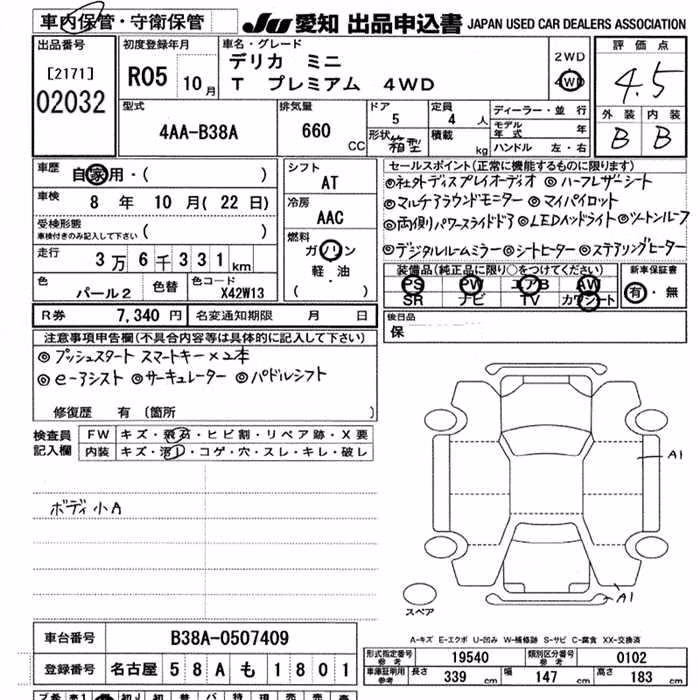 車内保管・守衛保管
JU 愛知 出品申込書 JAPAN USED CAR DEALERS ASSOCIATION
出品番号
[2171]
02032
初度登録年月
R05 10月
車名・グレード
デリカ ミニ
T プレミアム 4WD
2WD
4WD
評価点
4.5
外装 内装
B B
型式
4AA-B38A
排気量
660 CC
ドア
5
定員
4 人
形状
箱型
積載
kg
ディーラー・並行
モデル年式 年
ハンドル 左・右
車歴
自家用・( )
車検
8 年 10 月 (22 日)
受検形態
車検付きのみ記入して下さい ( )
走行
3万6千331km
色
パール2
色替
色コード
X42W13
シフト
AT
冷房
AAC
燃料
ガソリン
軽・油
( )
セールスポイント(正常に機能するものに限ります)
◎社外ディスプレイオーディオ ◎ハーフレザーシート
◎マルチアラウンドモニター ◎マイパイロット
◎両側パワースライドドア ◎LEDヘッドライト ◎ツートンルーフ
◎デジタルルームミラー ◎シートヒーター ◎ステアリングヒーター
装備品(純正品に限り○をつけてください)
PS PW エアB AW
SR ナビ TV カワシート
新車保証書
有・無
R券 7,340 円 名変通知期限 月 日
後日品
保
注意事項申告欄(不具合内容等は具体的に記入して下さい)
◎プッシュスタート スマートキー×2本
◎e-アシスト ◎サーキュレーター ◎パドルシフト
修復歴 有 〔箇所 〕
検査員
記入欄
FW キズ・飛石・ヒビ割・リペア跡・X要
内装 キズ・汚れ・コゲ・穴・スレ・キレ・破レ
ボディ小A
A1
A1
スペア
A-キズ E-エクボ U-凹み W-補修跡 S-サビ C-腐食 XX-交換済
車台番号 B38A-0507409
登録番号 名古屋 58A も 1801
型式指定番号 参考 19540 類別区分番号 参考 0102
車庫証明用 参考 長さ 339 cm 幅 147 cm 高さ 183 cm